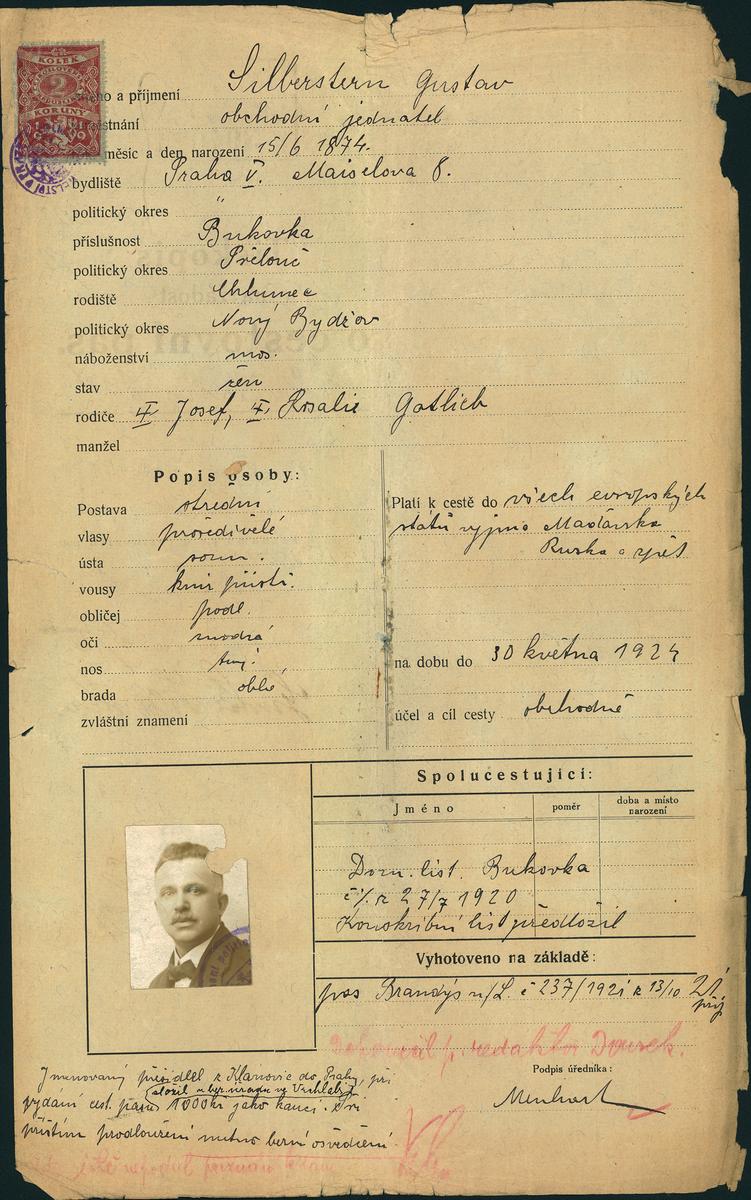 KOLEK
2
KORUNY
1919
méno a příjmení Silberstern Gustav
městnání obchodní jednatel
měsíc a den narození 15/6 1874.
bydliště Praha V. Maiselova 8.
politický okres "
příslušnost Bukovka
politický okres Přelouč
rodiště Chlumec
politický okres Nový Bydžov
náboženství mos.
stav žen
rodiče Josef, Rosalie Gotlieb
manžel
Popis osoby:
Postava střední
vlasy prošedivělé
ústa soum.
vousy knír přistř.
obličej podl.
oči modrá
nos
brada oblá
zvláštní znamení
Platí k cestě do všech evropských
států vyjma Maďarska
Ruska a zpět
na dobu do 30 května 1924
účel a cíl cesty obchodně
Spolucestující:
Jméno poměr doba a místo narození
Dom. list Bukovka
27/7 1920
Konskribní list předložil
Vyhotoveno na základě:
pas Brandýs n/L. č 237/1921 z 13/10
redaktor
Podpis úředníka:
Jmenovaný přisídlel z Klanovic do Prahy, při
složil u ber. úřadu ve
vydání cest. pasu 1000 kč jako kauci.
příštím prodloužení nutno berní osvědčení